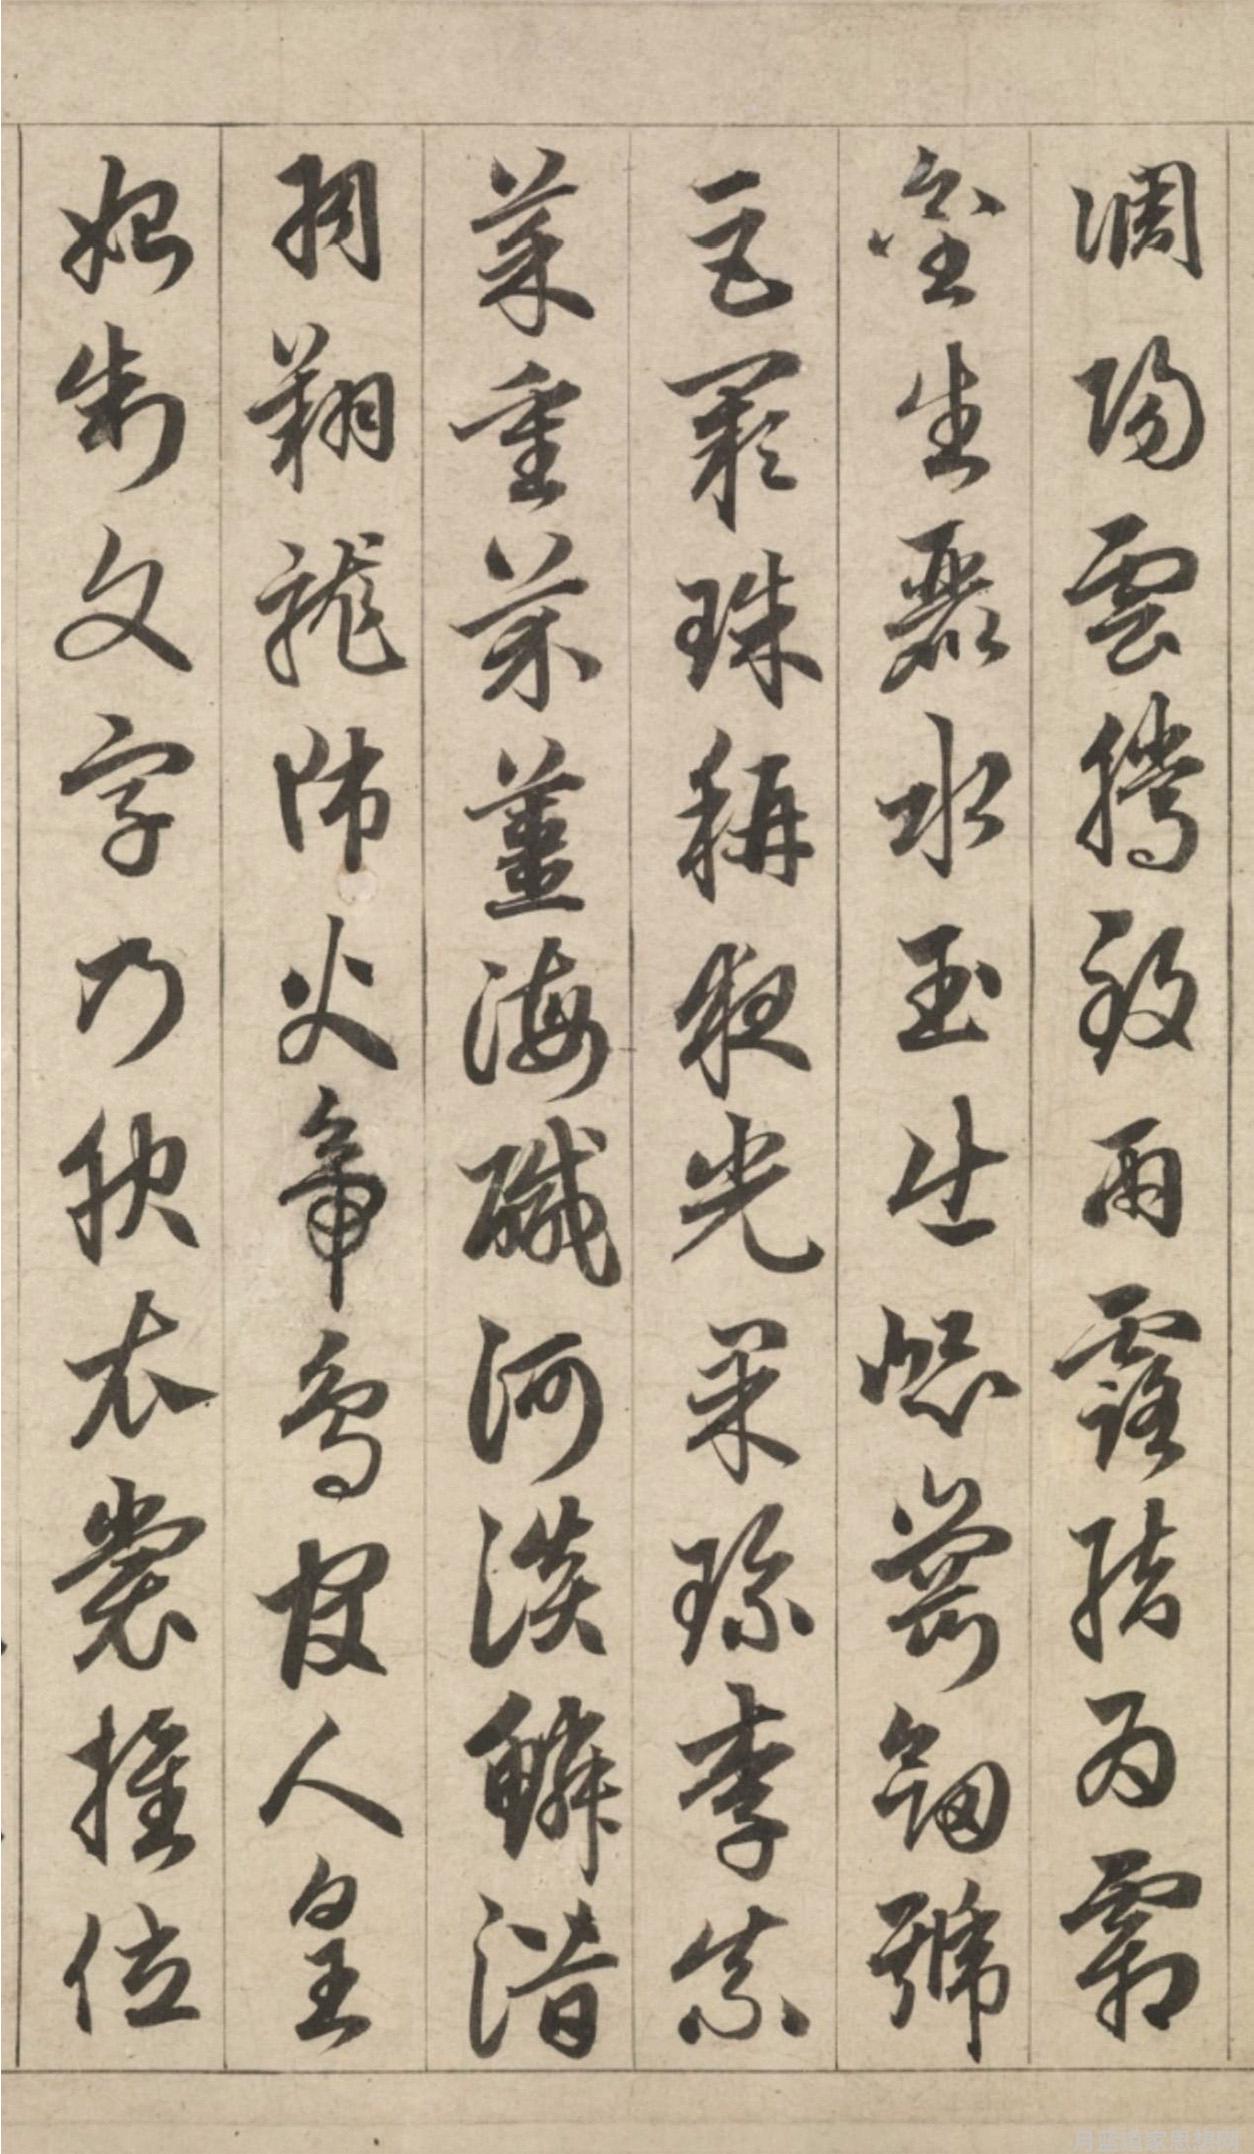 調陽雲騰致雨露結為霜
金生麗水玉出崑崗劍號
巨闕珠稱夜光果珍李柰
菜重芥薑海醎河淡鱗潛
羽翔龍師火帝鳥官人皇
始制文字乃服衣裳推位